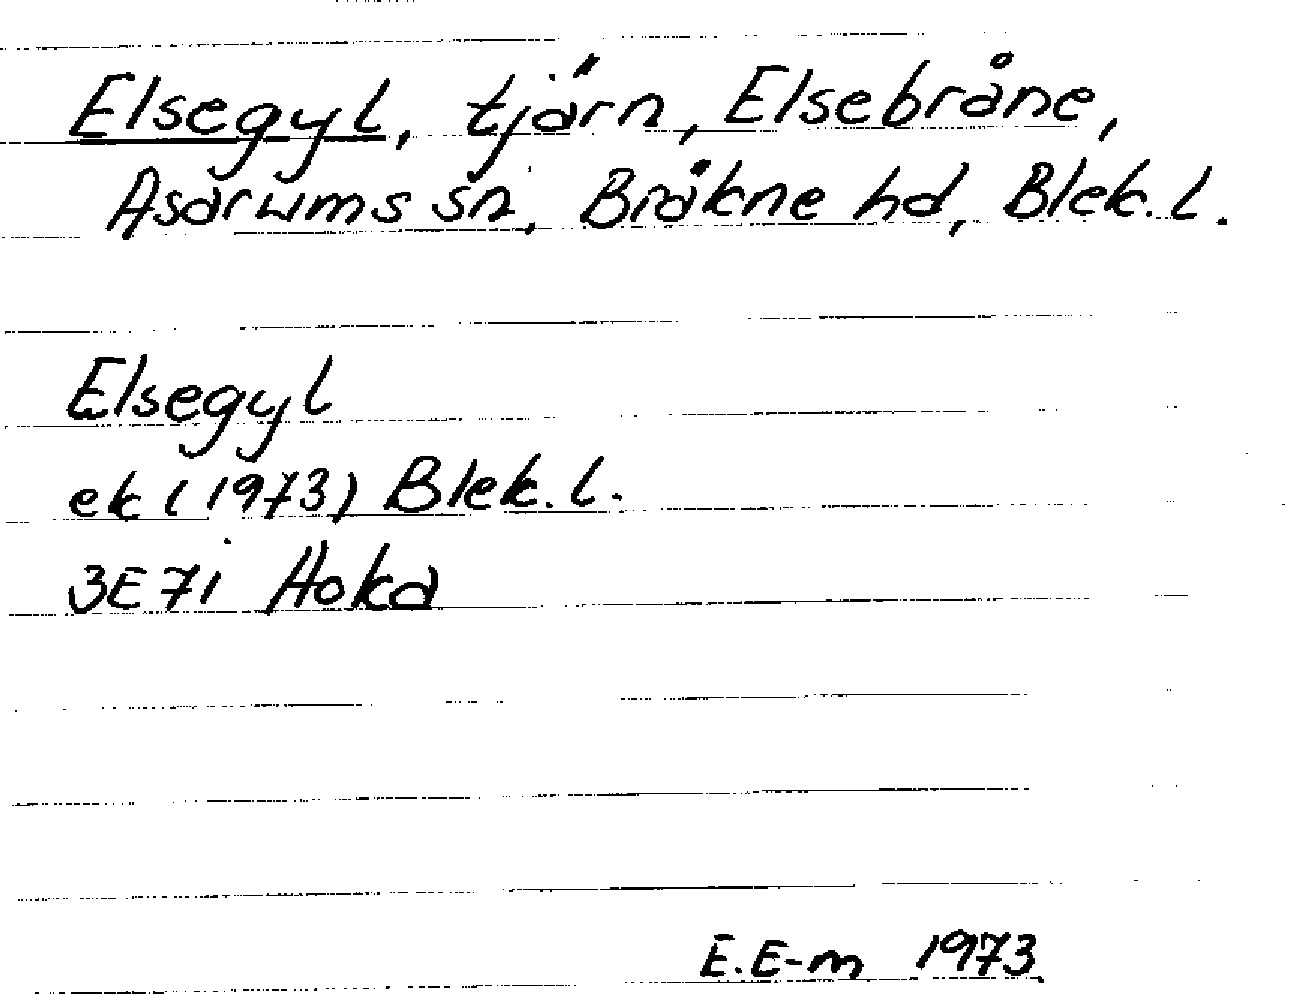 Elsegyl, tjärn, Elsebråne,
Asarums sn, Bräkne hd, Blek. l.
Elsegyl
ek (1973) Blek. l.
3E 7i Hoka
E.E-m 1973